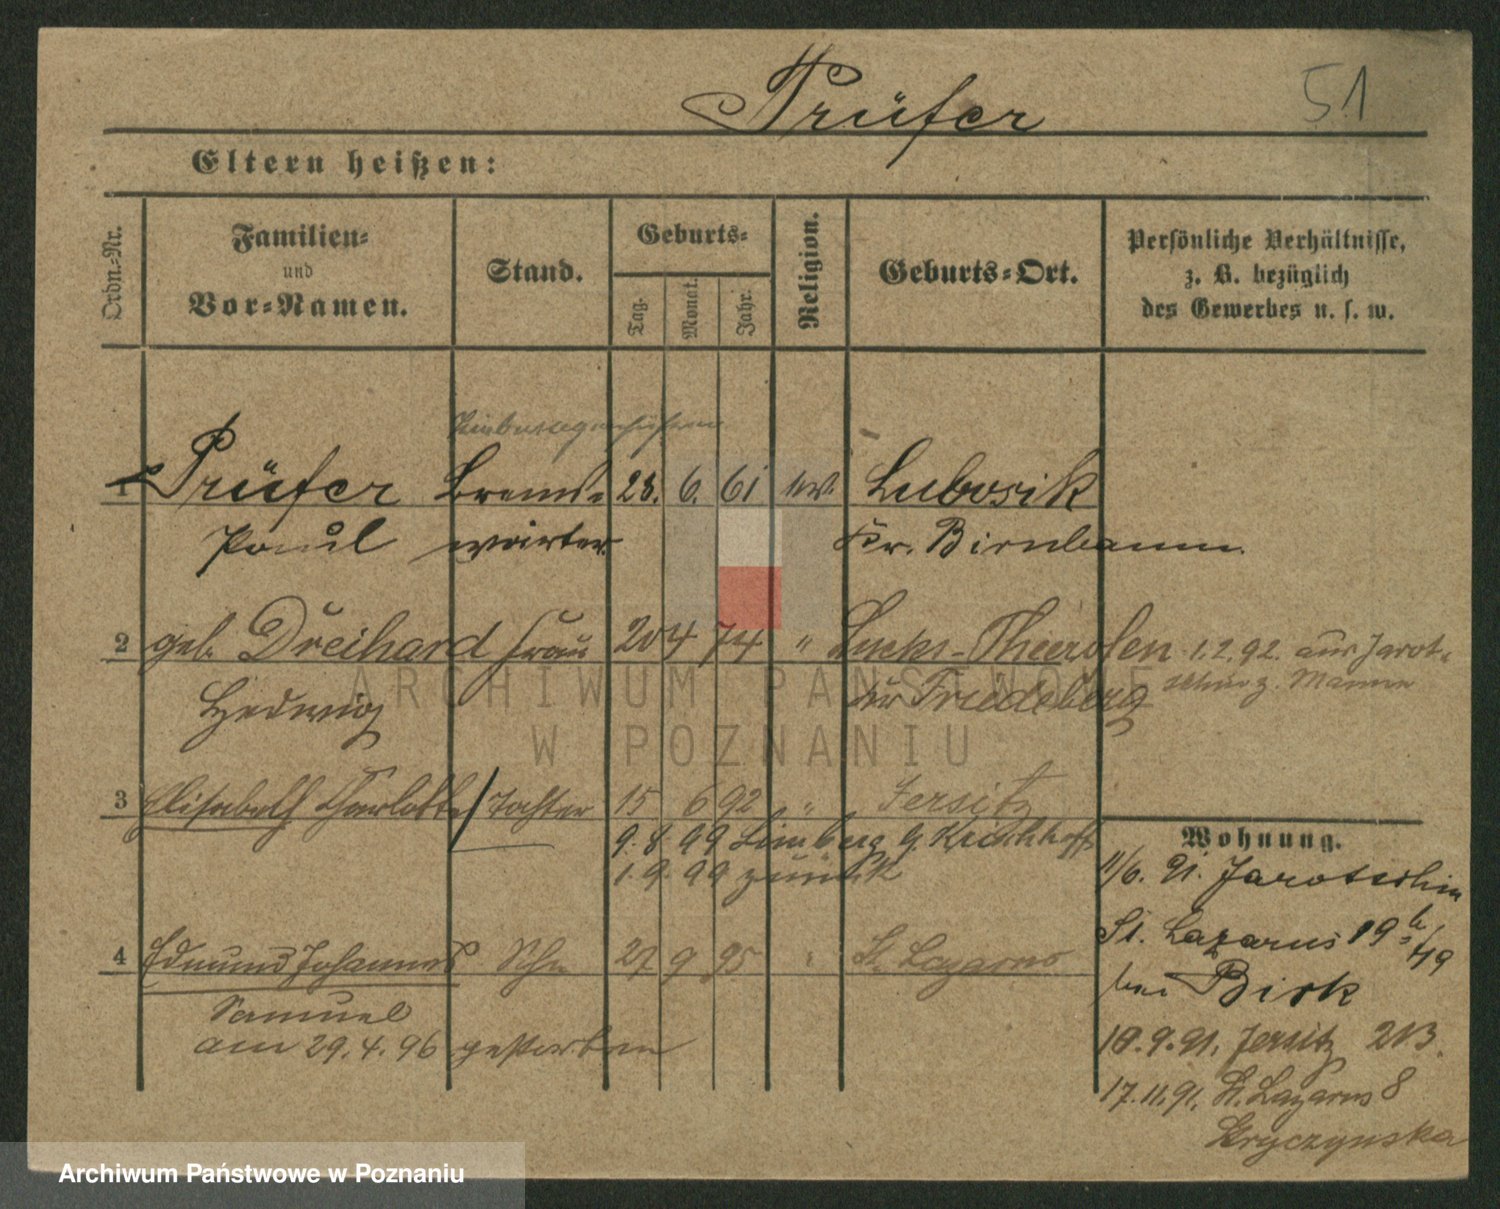 Prüfer 51
Eltern heißen:
Ordn.-Nr. Familien- und Vor-Namen. Stand. Geburts- Tag. Monat. Jahr. Religion. Geburts-Ort. Persönliche Verhältnisse, z. B. bezüglich des Gewerbes u. s. w.
1 Prüfer Brems- 28. 6. 61 ev. Lubosik
Paul wärter Kr. Birnbaum
2 geb. Dreihard Frau 20 4 74 " Theerofen 1.2.92. aus Jarot-
Hedwig Friedeberg schin z. Manne
3 Elisabeth Charlotte / Tochter 15 6 92 " Jersitz
9. 8. 99 Limberg Kirchhoff
1. 9. 99 zurück
4 Edmund Johannes Sohn 27 9 95 " St. Lazarus
Samuel
am 29.4.96 gestorben
Wohnung.
11/6. 91. Jarotschin
St. Lazarus 19
bei Birk
10.9.91. Jersitz 213.
17.11.91. St. Lazarus 8
Gryczynska
ARCHIWUM PAŃSTWOWE
W POZNANIU
Archiwum Państwowe w Poznaniu